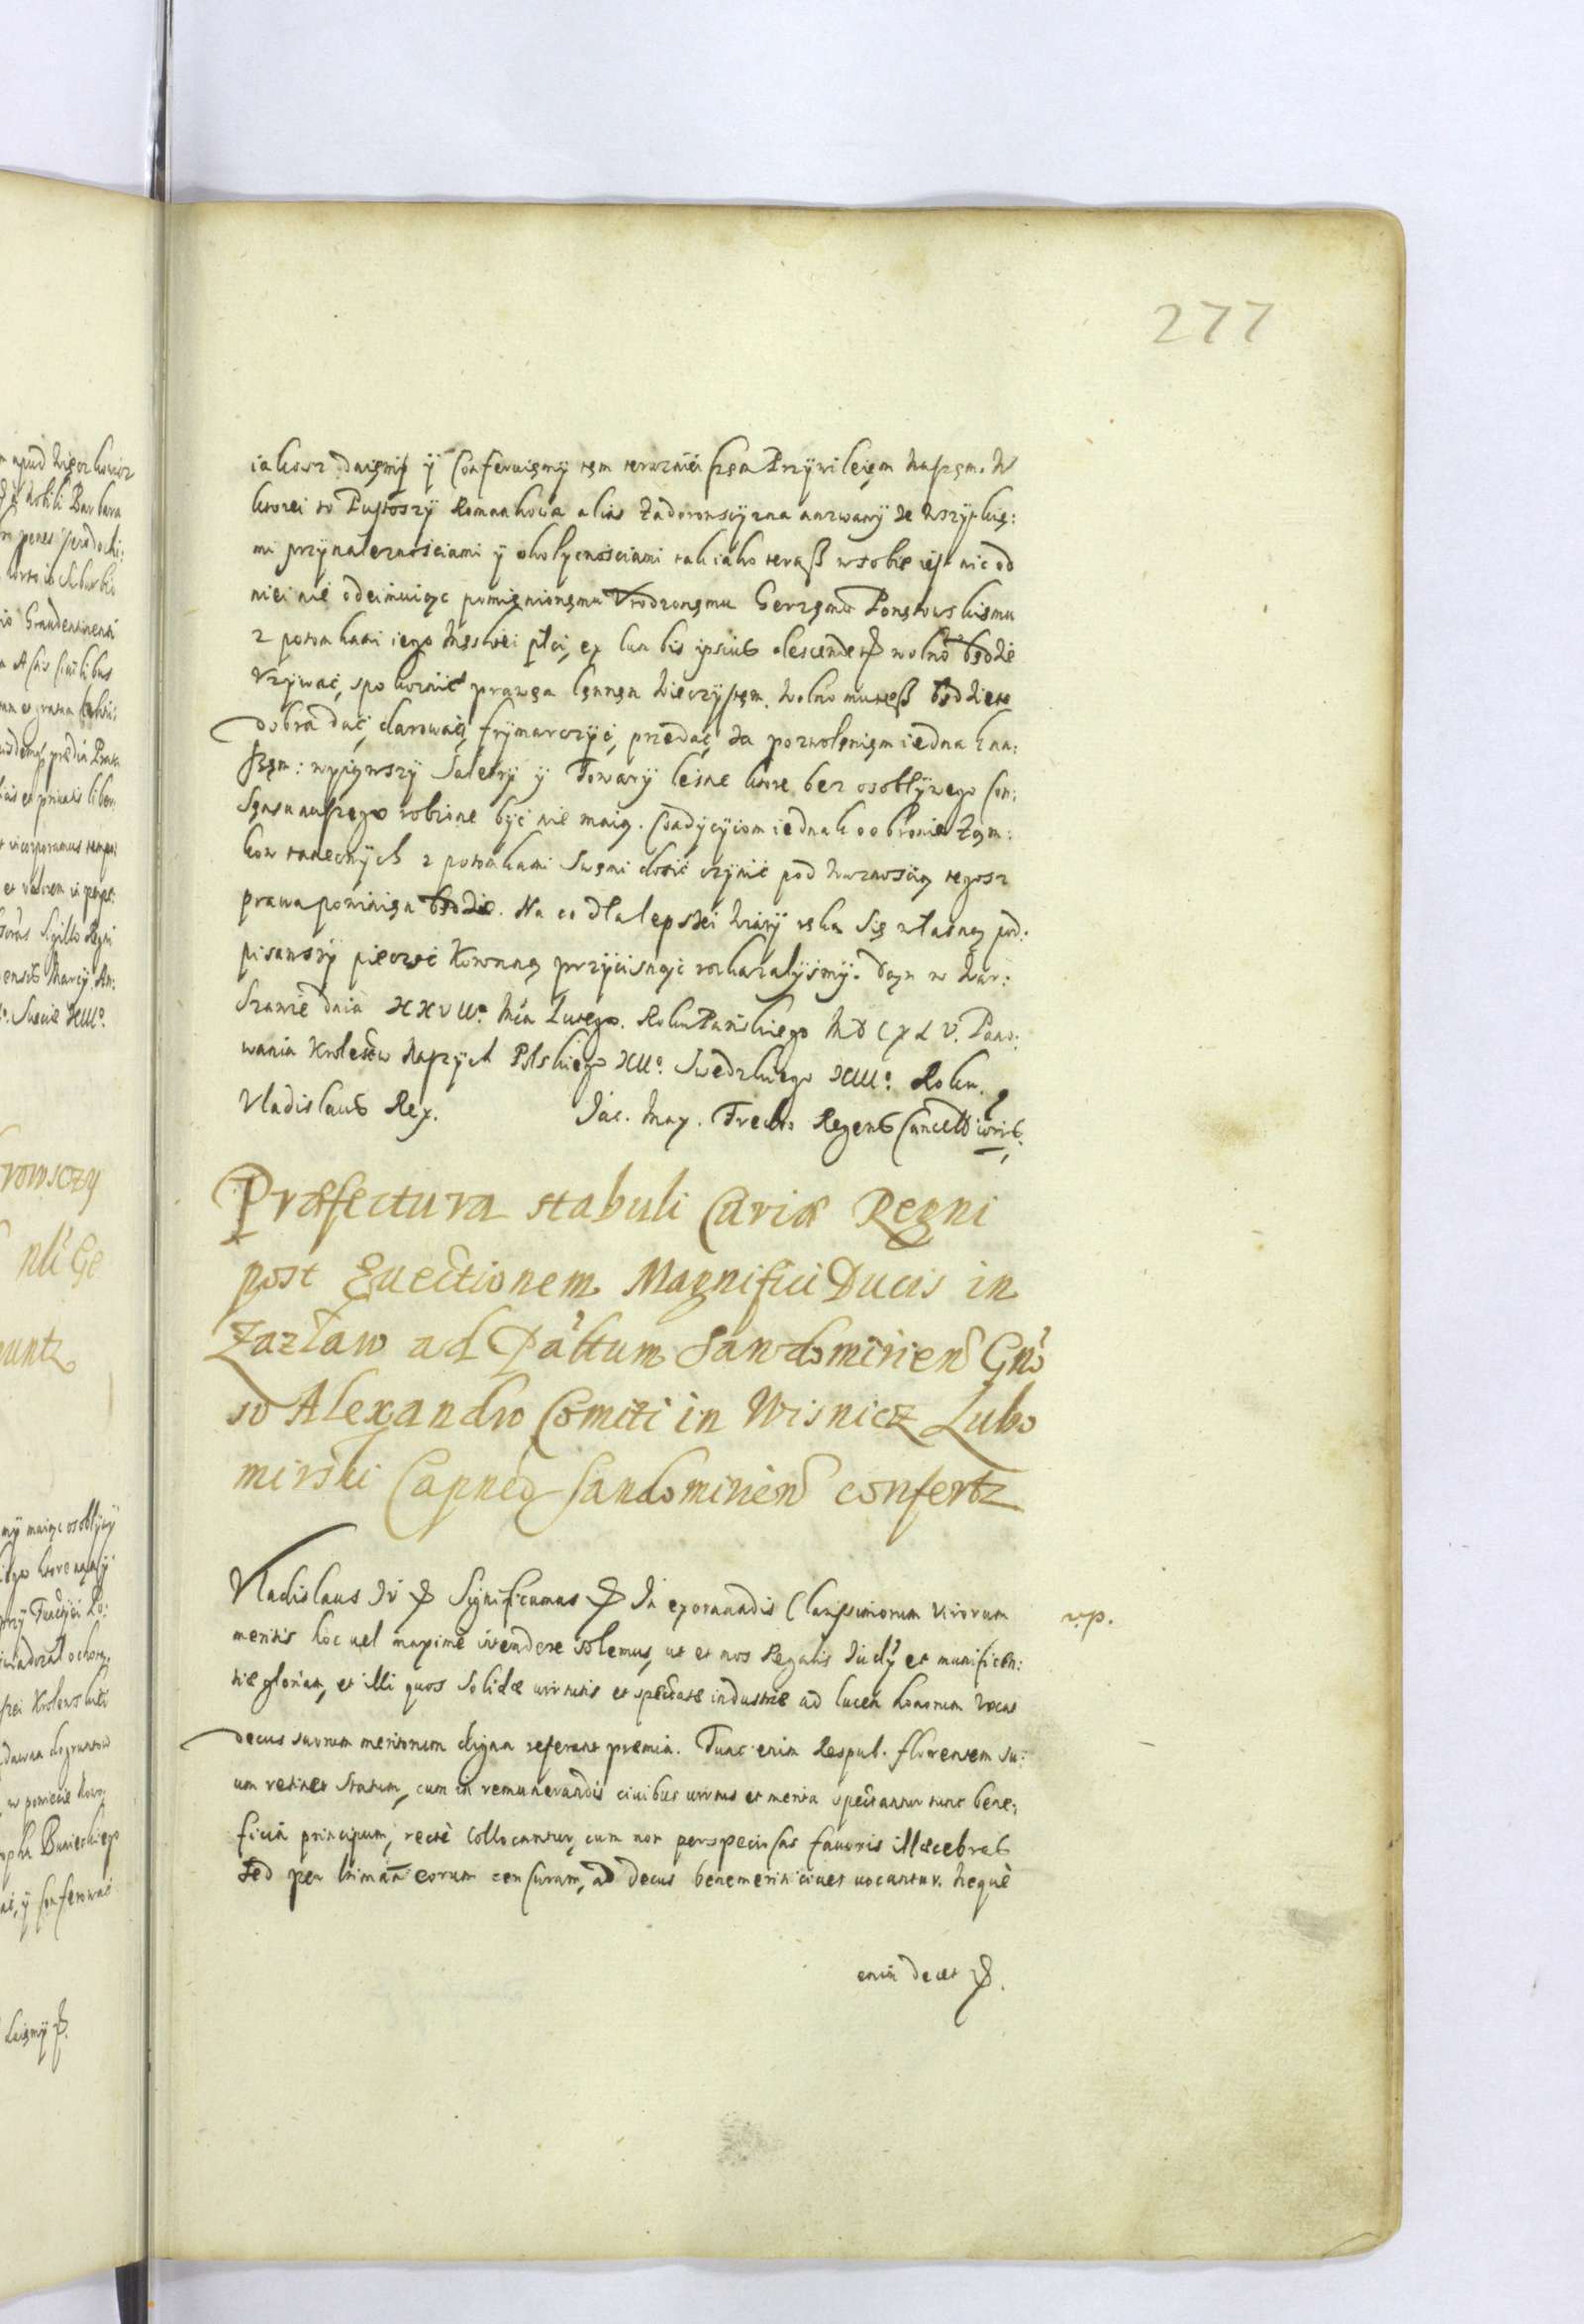 277
iakosz daięmÿ ÿ Conferuięmÿ tęm terazniei szęm Przÿwileięm Naszęm. W
ktorei to Pustoszÿ Romankowa alias Zadoronsczÿzna nazwanÿ ze wszÿtkię:
mi przÿnależnosciami ÿ okolycnosciami tak iako teraß wsobie iest nic od
niei nie odeimuiąc pomięnionęmu Vrodzonęmu Gerzęmu Ponętowskięmu
z potomkami iego Męskiei płci, ex lumbis ipsius descenden wolno będzie
Vzÿwać, spokoinie prawęm lęnnęm Wieczÿstęm. Wolno mu teß będzie te
dobra dać, darowac, frÿmarczÿć, przedać, za pozwolęnięm iednak na:
szęm: wÿiąwszÿ Saletrÿ ÿ Towarÿ leśne ktore bez osoblÿwego Con:
sęnsu naszego robione bÿć nie maią. Condÿcÿiom iednak o obronie Zęm:
kow tamecnÿch z potomkami swęmi dosić czÿnić pod waznoscią tegosz
prawa powinięn będzie. Na co dla lepszei wiarÿ ręką się własną pod:
pisawszÿ pieczęć Koronną przÿcisnąć roskazalÿsmÿ. Dan w War:
szawie dnia XXVII° Mca Lutego. Roku Pańskiego MDCXLV. Pano:
wania Krolestw Naszÿch Polskiego XIII° Swedzkiego XIIII° Roku.
Vladislaus Rex. Jac. Max. Fredro Regens Cancellariæ
Præfectura stabuli Curiæ Regni
post Euectionem Magnifici Ducis in
Zazław ad Pałtum Sandomirien Gńo
so Alexandro Comiti in Wisnicz Lubo
mirski Capneo Sandomirien confertz
Vladislaus IV Significamus In exornandis Clarissimorum virorum
v.p.
meritis hoc uel maximè intendere solemus, ut et nos Regalis Iudÿ et munificen:
tiæ gloriam, et illi quos solidæ uirtutis et spectatæ industriæ ad lucem honorum vocat
decus suorum meritorum digna referant premia. Tunc enim Respub. florentem su:
um retinet Statum, cum in remunerandis ciuibus uirtus et merita spectantur tunc bene:
ficia principum, rectè collocantur, cum non per speciosas fauoris illecebras
sed per intimam eorum censuram, ad decus benemeriti ciues uocantur. Nequè
enim decet